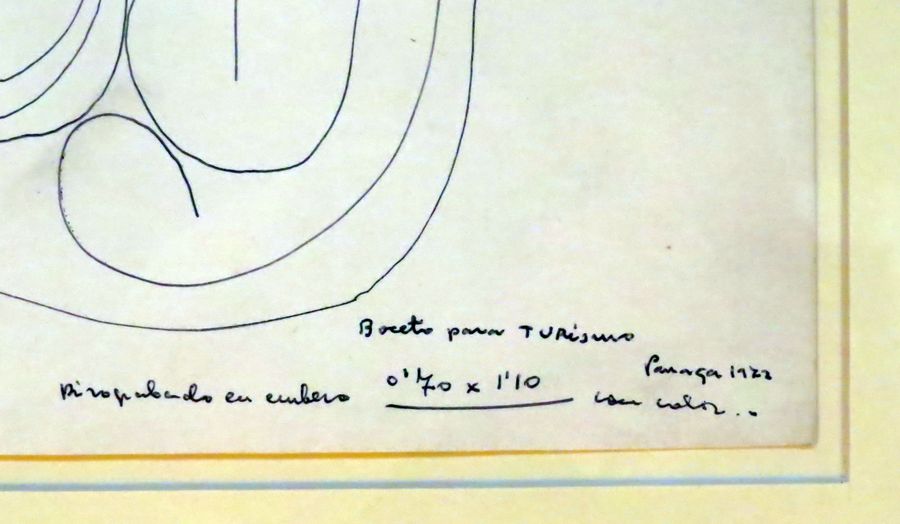 Boceto para TURismo
Párraga 1972
Pirograbado en embero 0'70 x 1'10 con color...